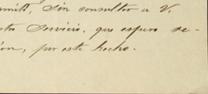 sin consultar a V.
to servicio, que espero se-
ón, por este hecho.